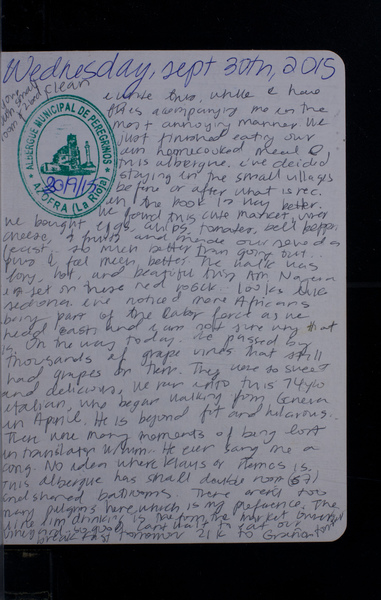 Wednesday, Sept 30th, 2015
clean
I write this, while I have
flies accompanying me in the
most annoying manner. We
just finished eating our
own homecooked meal @
this albergue. I've decided
staying in the small villages
before or after what is rec.
in the book is way better.
We found this cute market, where
we bought eggs, chips, tomatoes, bell pepper,
cheese, & fruits and made ourselves a
feast. So much better than going out...
plus I feel much better. The walk was
long, hot, and beautiful this AM. Najera
is set on these red rocks. Looks like
Sedona. I've noticed more Africans
being part of the labor force as we
head East and I am not sure why that
is. On the way today we passed by
thousands of grape vines that still
had grapes on them. They were so sweet
and delicious. We ran into this 74 yo
Italian, who began walking from Geneva
in April. He is beyond fit and hilarious.
There were many moments of being lost
in translation w/him. He even sang me a
song. No idea where Klays or Thomas is.
This albergue has small double rooms (€7)
and shared bathrooms. There aren't too
many pilgrims here, which is my preference. The
wine I'm drinking is from the market
vineyard so good. Can't wait to eat our
breakfast tomorrow. 21 K to Grañon
ALBERGUE MUNICIPAL DE PEREGRINOS
30/9/15
AZOFRA (La Rioja)